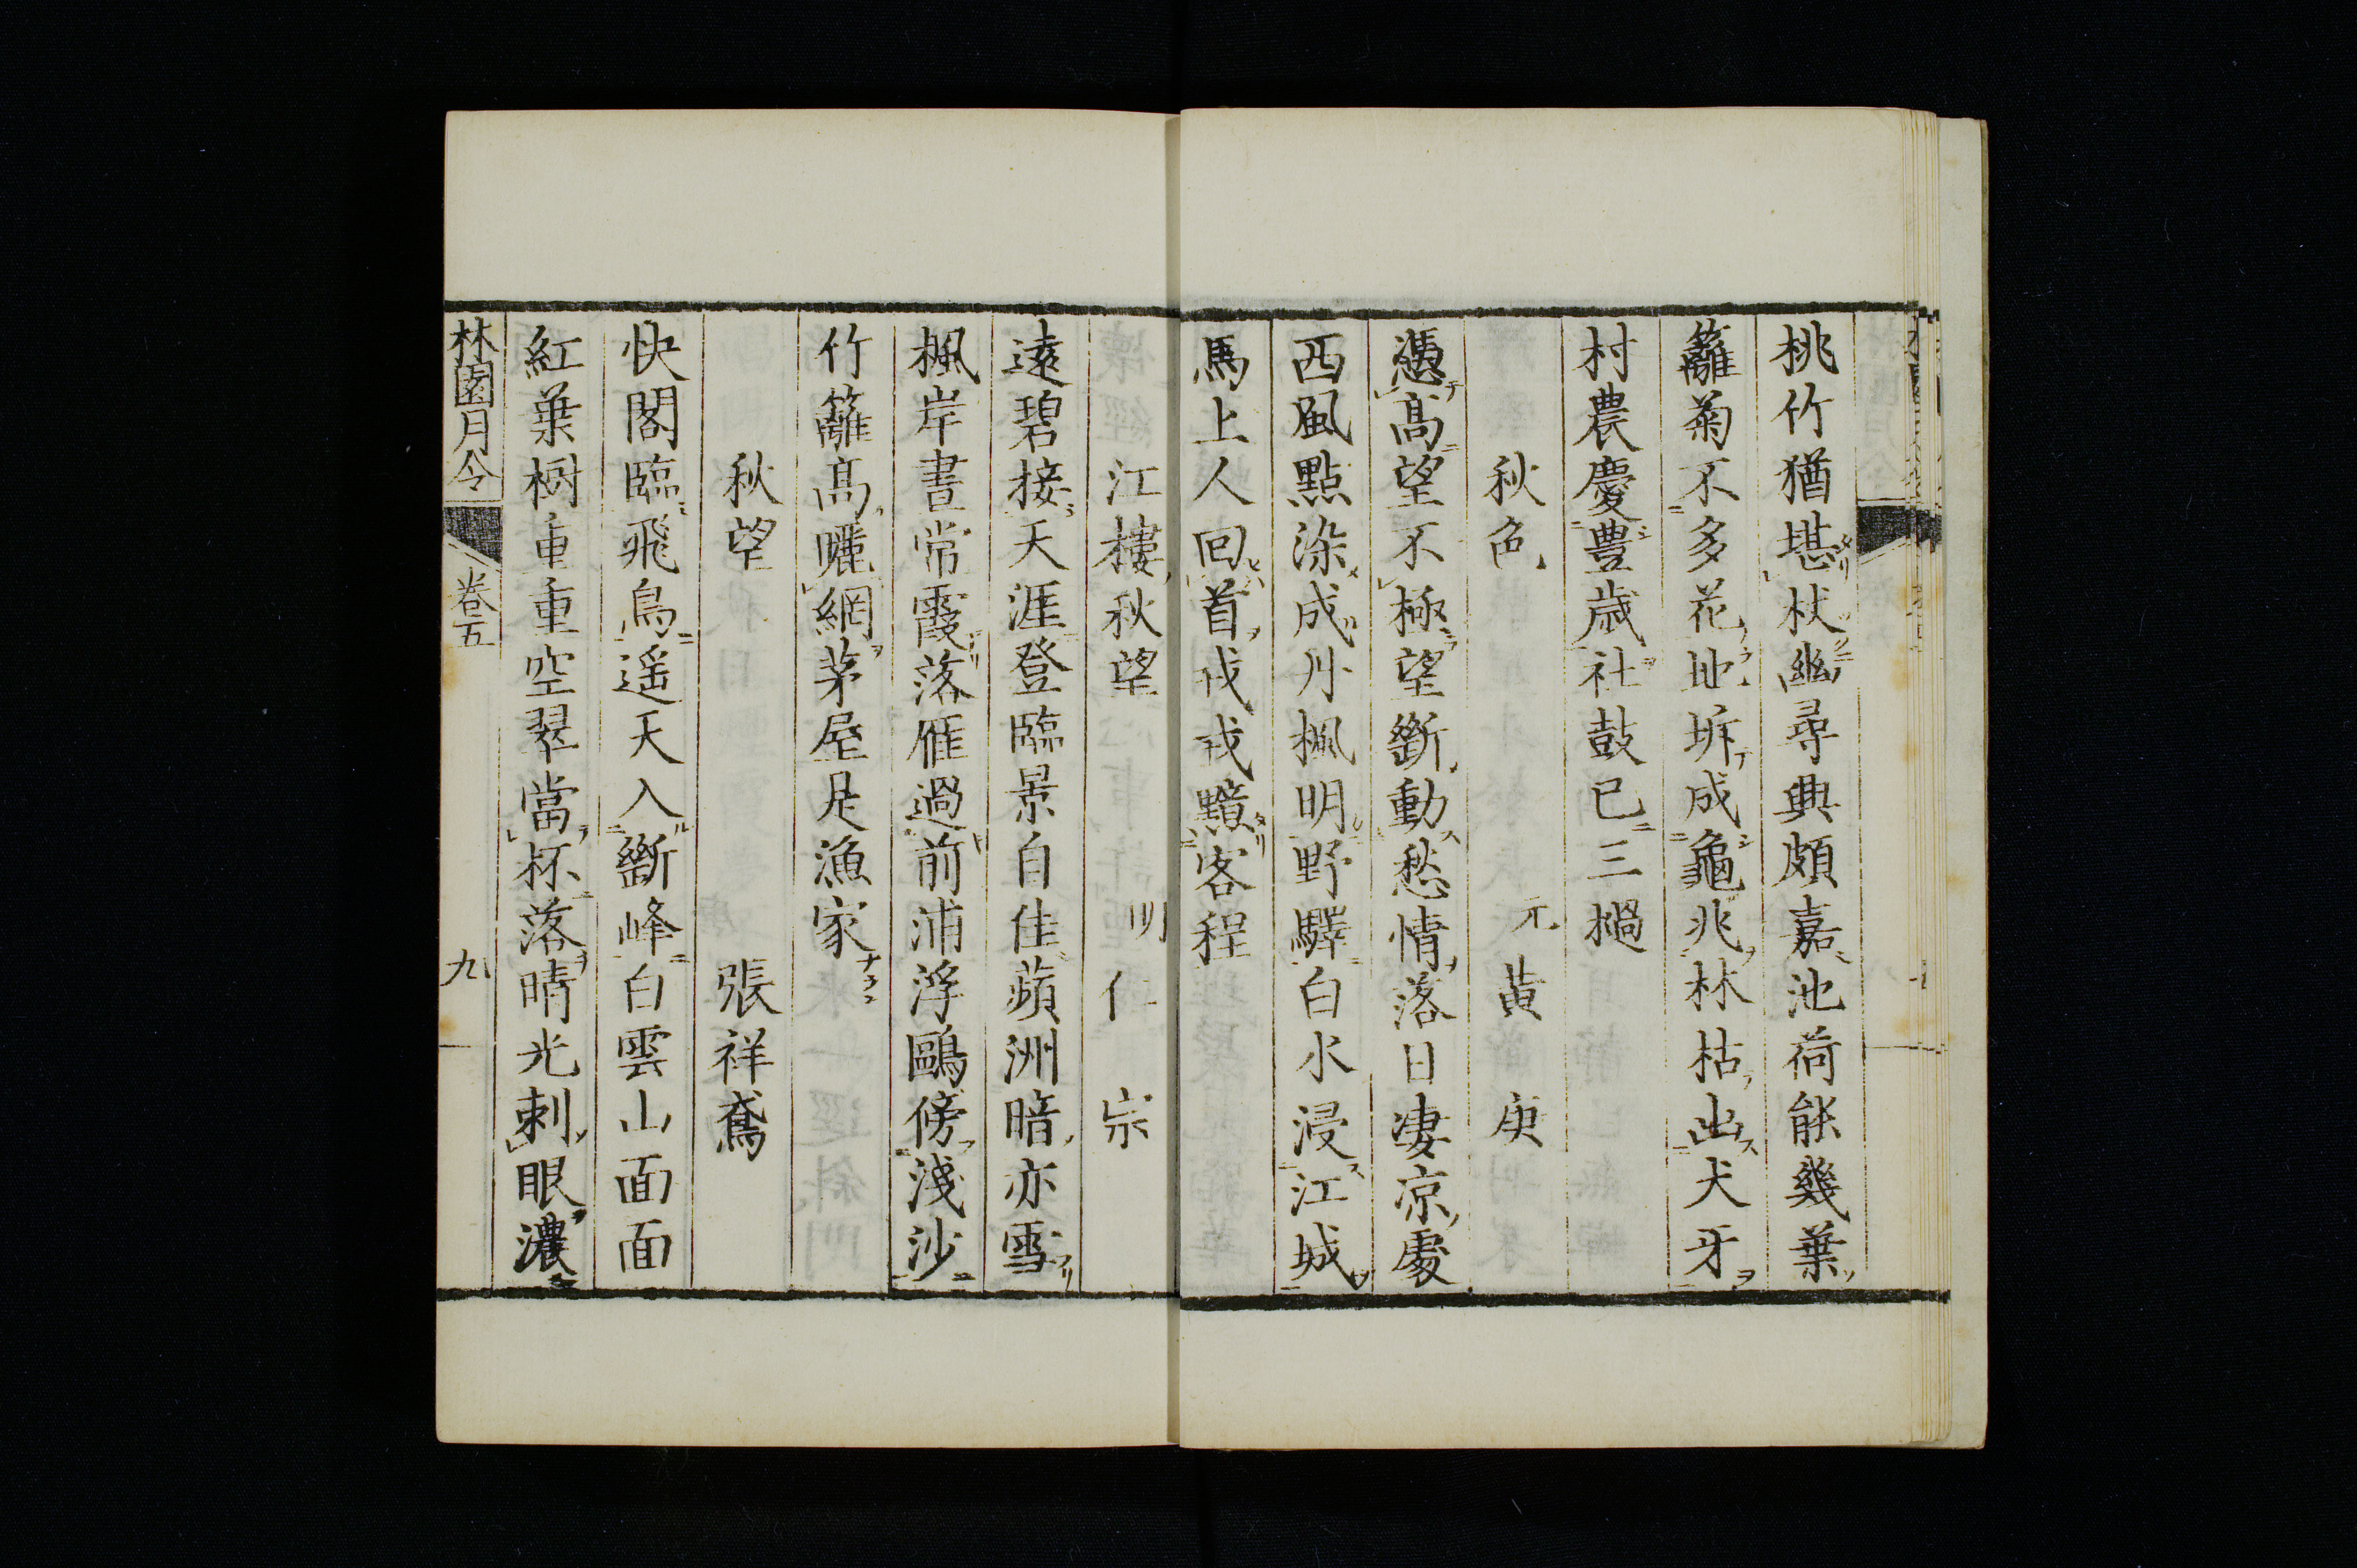 桃竹猶堪杖幽尋興頗嘉池荷能幾葉
籬菊不多花地坼成龜兆林枯出犬牙
村農慶豊歳社鼓已三撾
秋色　元　黄庚
憑高望不極望斷動愁情落日凄凉處
西風點染成丹楓明野驛白水浸江城
馬上人回首戎戎黯客程
江樓秋望　明　仁宗
遠碧接天涯登臨景自佳蘋洲暗亦雪
楓岸晝常霞落雁過前浦浮鷗傍淺沙
竹籬高曬網茅屋是漁家
秋望　張祥鳶
快閣臨飛鳥遥天入斷峰白雲山面面
紅葉樹重重空翠當杯落晴光刺眼濃
林園月令　卷五　九